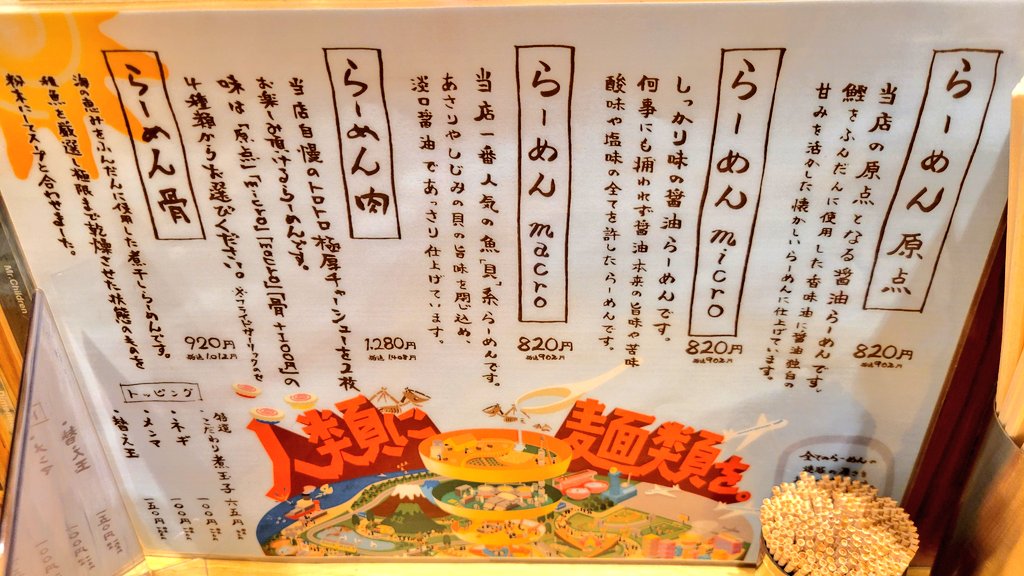 らーめん 原点
当店の原点となる醤油らーめんです。
鰹をふんだんに使用した香味油に醤油独自の
甘みを活かした懐かしいらーめんに仕上げています。
820円
税込902円
らーめん micro
しっかり味の醤油らーめんです。
何事にも捕われず醤油本来の旨味や苦味
酸味や塩味の全てを許したらーめんです。
820円
税込902円
らーめん macro
当店一番人気の魚「貝」系らーめんです。
あさりやしじみの貝の旨味を閉じ込め、
淡口醤油であっさり仕上げています。
820円
税込902円
らーめん 肉
当店自慢のトロトロ極厚チャーシューを2枚
お楽しみ頂けるらーめんです。
味は「原点」「micro」「macro」「骨 +100円」の
4種類からお選びください。
1,280円
税込1,408円
らーめん 骨
海の恵みをふんだんに使用した煮干しらーめんです。
種魚を厳選し極限まで乾燥させた状態のものを
粉末にしてスープと合わせました。
920円
税込1,012円
トッピング
特選こだわり煮玉子
・ネギ 一〇〇円
・メンマ 一〇〇円
・替え玉 一五〇円
人類に
麺類を。
全てのらーめんの
Mr.Children
・替え玉
・メンマ